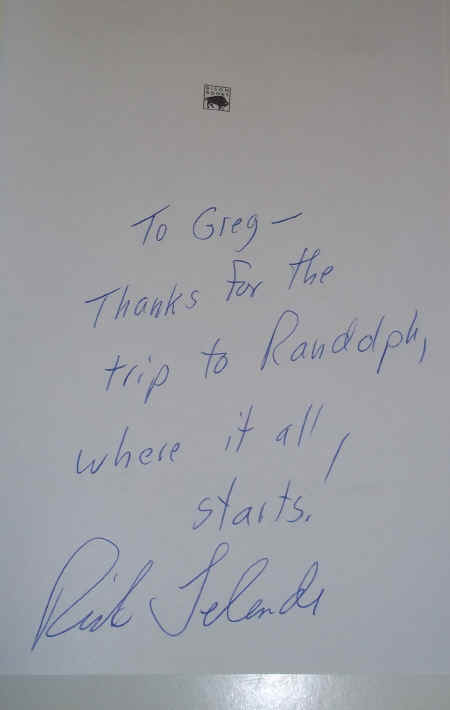 BISON
BOOKS
To Greg—
Thanks for the
trip to Randolph,
where it all
starts!
Rick Telander